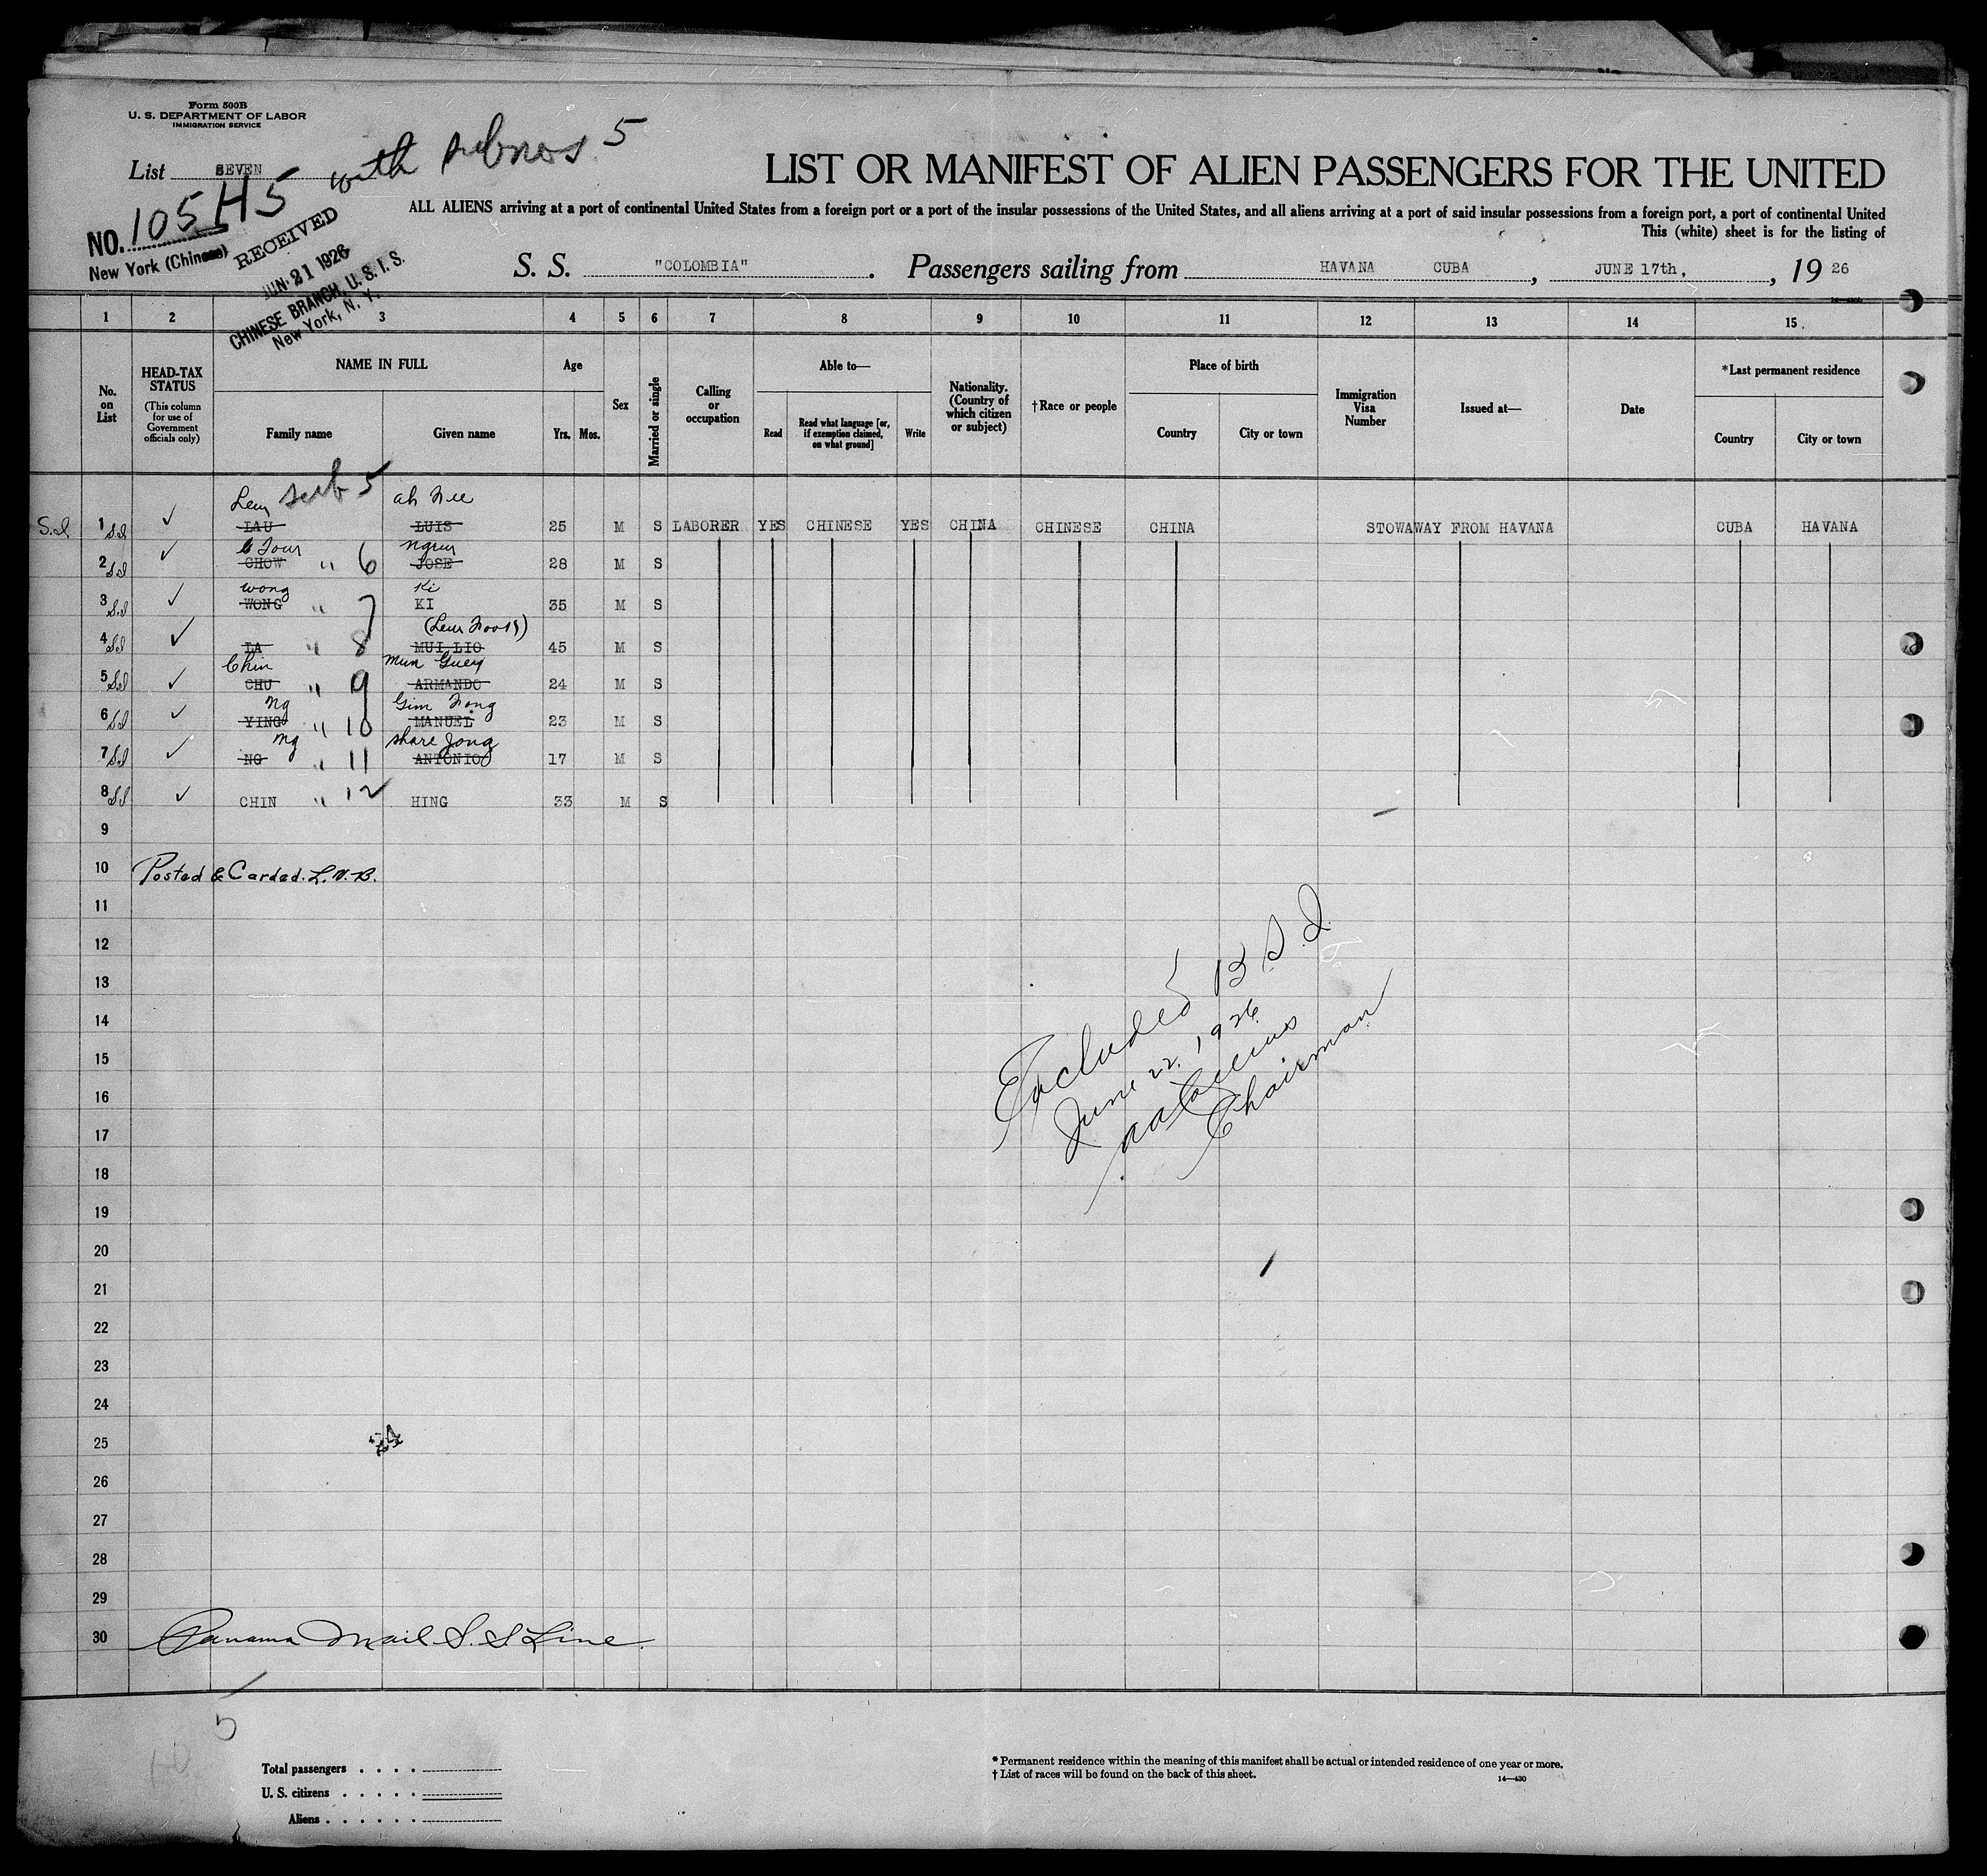 Form 500B
U. S. DEPARTMENT OF LABOR
IMMIGRATION SERVICE
List SEVEN
with subnos. 5
NO. 105 H5
New York (Chinese)
RECEIVED
JUN 21 1926
CHINESE BRANCH, U. S. I. S.
New York, N. Y.
LIST OR MANIFEST OF ALIEN PASSENGERS FOR THE UNITED
ALL ALIENS arriving at a port of continental United States from a foreign port or a port of the insular possessions of the United States, and all aliens arriving at a port of said insular possessions from a foreign port, a port of continental United
This (white) sheet is for the listing of
S. S. "COLOMBIA". Passengers sailing from HAVANA CUBA, JUNE 17th, , 19 26
1 2 3 4 5 6 7 8 9 10 11 12 13 14 15
No. on List
HEAD-TAX STATUS
(This column for use of Government officials only)
NAME IN FULL
Family name
Given name
Age
Yrs. Mos.
Sex
Married or single
Calling or occupation
Able to—
Read
Read what language [or, if exemption claimed, on what ground]
Write
Nationality. (Country of which citizen or subject)
†Race or people
Place of birth
Country
City or town
Immigration Visa Number
Issued at—
Date
*Last permanent residence
Country
City or town
Lem sub 5
1 LAU LUIS 25 M S LABORER YES CHINESE YES CHINA CHINESE CHINA STOWAWAY FROM HAVANA CUBA HAVANA
2 CHOW " 6 JOSE 28 M S
Wong Ki
3 WONG " 7 KI 35 M S
4 LA " 8 MUI LIO 45 M S
Chin Mun Guey
5 CHU " 9 ARMANDO 24 M S
Ng Gim
6 YING " 10 MANUEL 23 M S
Ng Share Jong
7 NG " 11 ANTONIO 17 M S
8 CHIN " 12 HING 33 M S
9
10 Posted & Carded. L.V.B.
11
12
13
14
15
16
17
18
19
20
21
22
23
24
25
26
27
28
29
30 Panama Mail S. S Line
Excluded B S I
June 22, 1926
Chairman
24
5
10
Total passengers
U. S. citizens
Aliens
* Permanent residence within the meaning of this manifest shall be actual or intended residence of one year or more.
† List of races will be found on the back of this sheet.
14—430